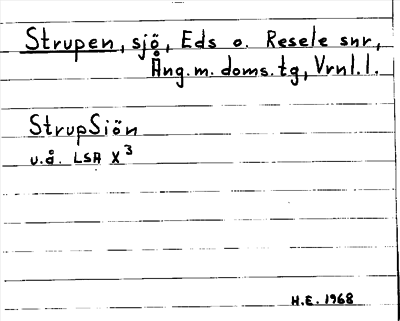 Strupen, sjö, Eds o. Resele snr,
Ång. m. doms. tg, Vrnl. l.
StrupSiön
u.å. LSA X³
H.E. 1968